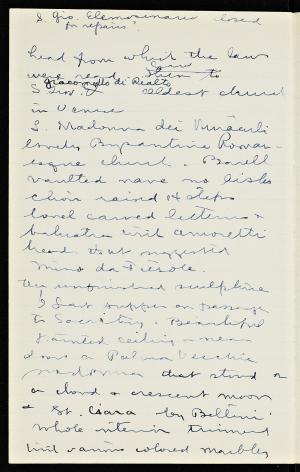 S. Gio. Elemosinario closed
for repairs.
head from which the law
were read.
S. Giacometto di Rialto
oldest church
in Venice
S. Madonna dei Miraculi
lovely Byzantine Roman-
esque church. Barell
vaulted nave no aisles
choir raised 14 steps
lovel carved lecterns &
balustra with amoretti
heads that suggested
Mino da Fiesole.
unfinished sculpture
of Last Supper on passage
to Sacristy. Beautiful
painted ceiling & near
door a Palma Vecchio
madonna that stood on
a cloud & crescent moon
& St. Ciara by Bellini
Whole interior trimmed
with various colored marbles